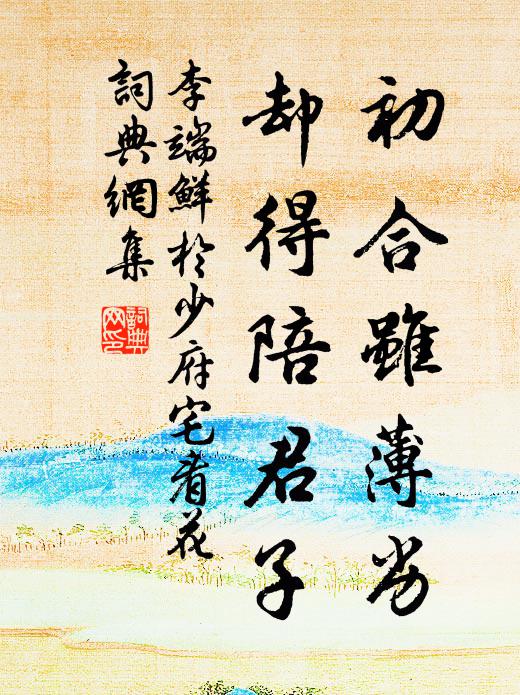 初合雖薄劣
却得陪君子
李端鮮於少府宅看花
詞典網集
詞典
网印